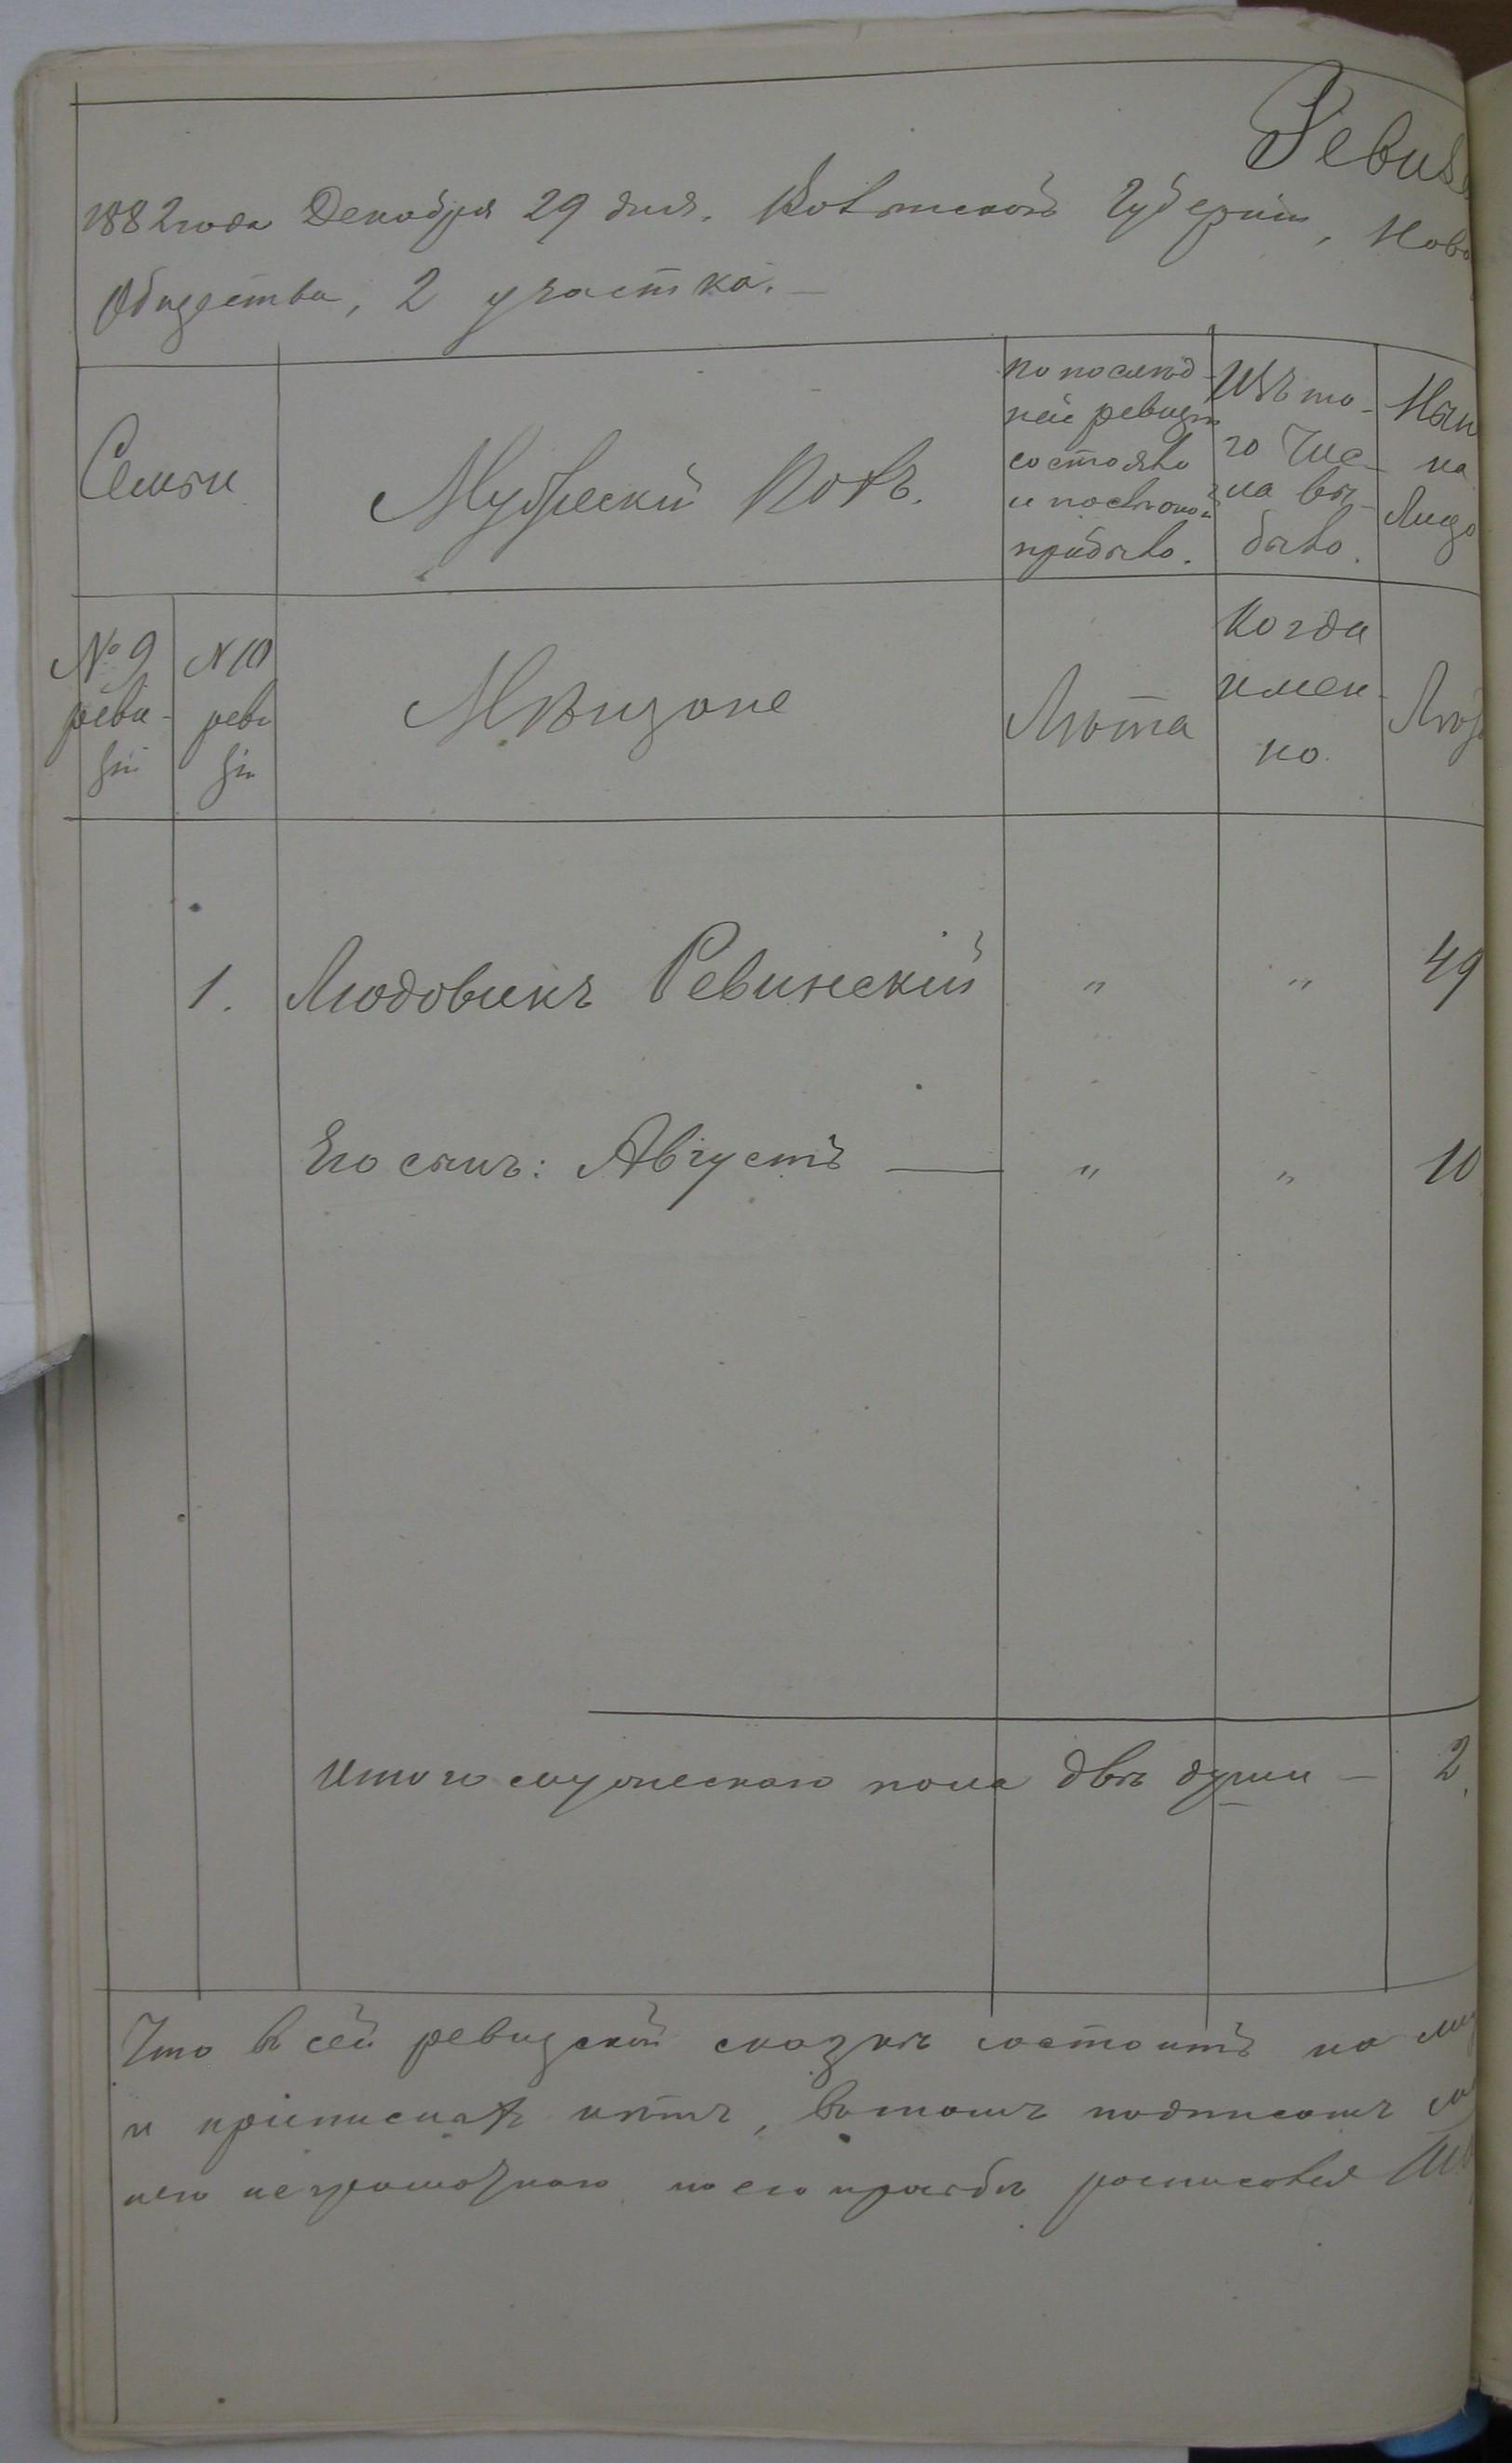 Ревиз
1882 года Декабря 29 дня. Ковенской Губерніи, Ново
Общества, 2 участка.
Семьи
Мужескій Полъ.
По послѣд-
ней ревизіи
состояло
и послѣ оной
прибыло.
Изъ то-
го чис-
ла вы-
было.
Нын
на
Лицо
№ 9
реви-
зіи
N 10
реви
зіи
Мѣщане
Лѣта
Когда
имен-
но.
Лѣт
1. Людовикъ Ревинскій " " 49
Его сынъ: Августъ — " " 10
Итого мужескаго пола двѣ души — 2.
Что в сей ревизской сказкѣ состоитъ на
и прописныхъ нѣтъ, в томъ подписомъ
него неграмотнаго по его просьбѣ росписался